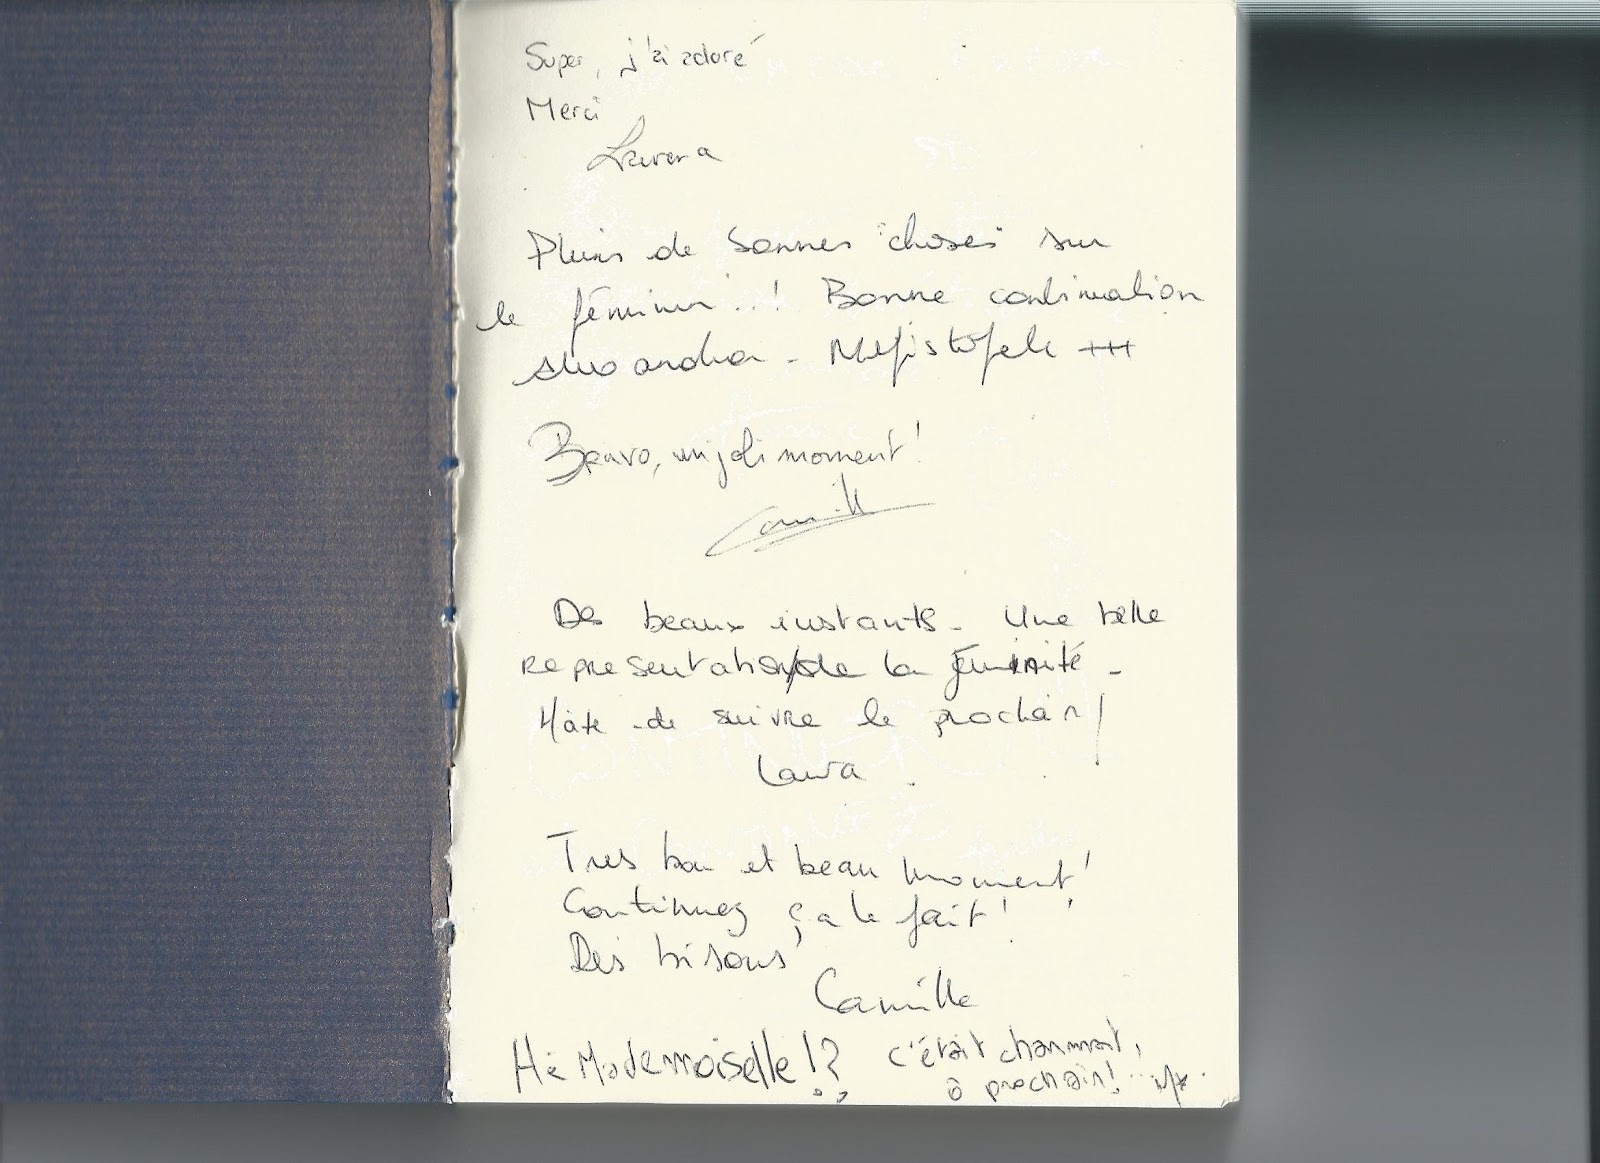 Super, j'ai adoré
Merci
Pleins de bonnes "choses" sur
le féminin..! Bonne continuation
Alexandra - Mefistofele +++
Bravo, un joli moment!
Camille
Des beaux instants - Une belle
representation de la féminité -
Hâte de suivre le prochain!
Laura
Tres bon et beau moment!
Continuez ça le fait!
Des bisous
Camille
Hé Mademoiselle!? c'était charmant,
à prochain!...